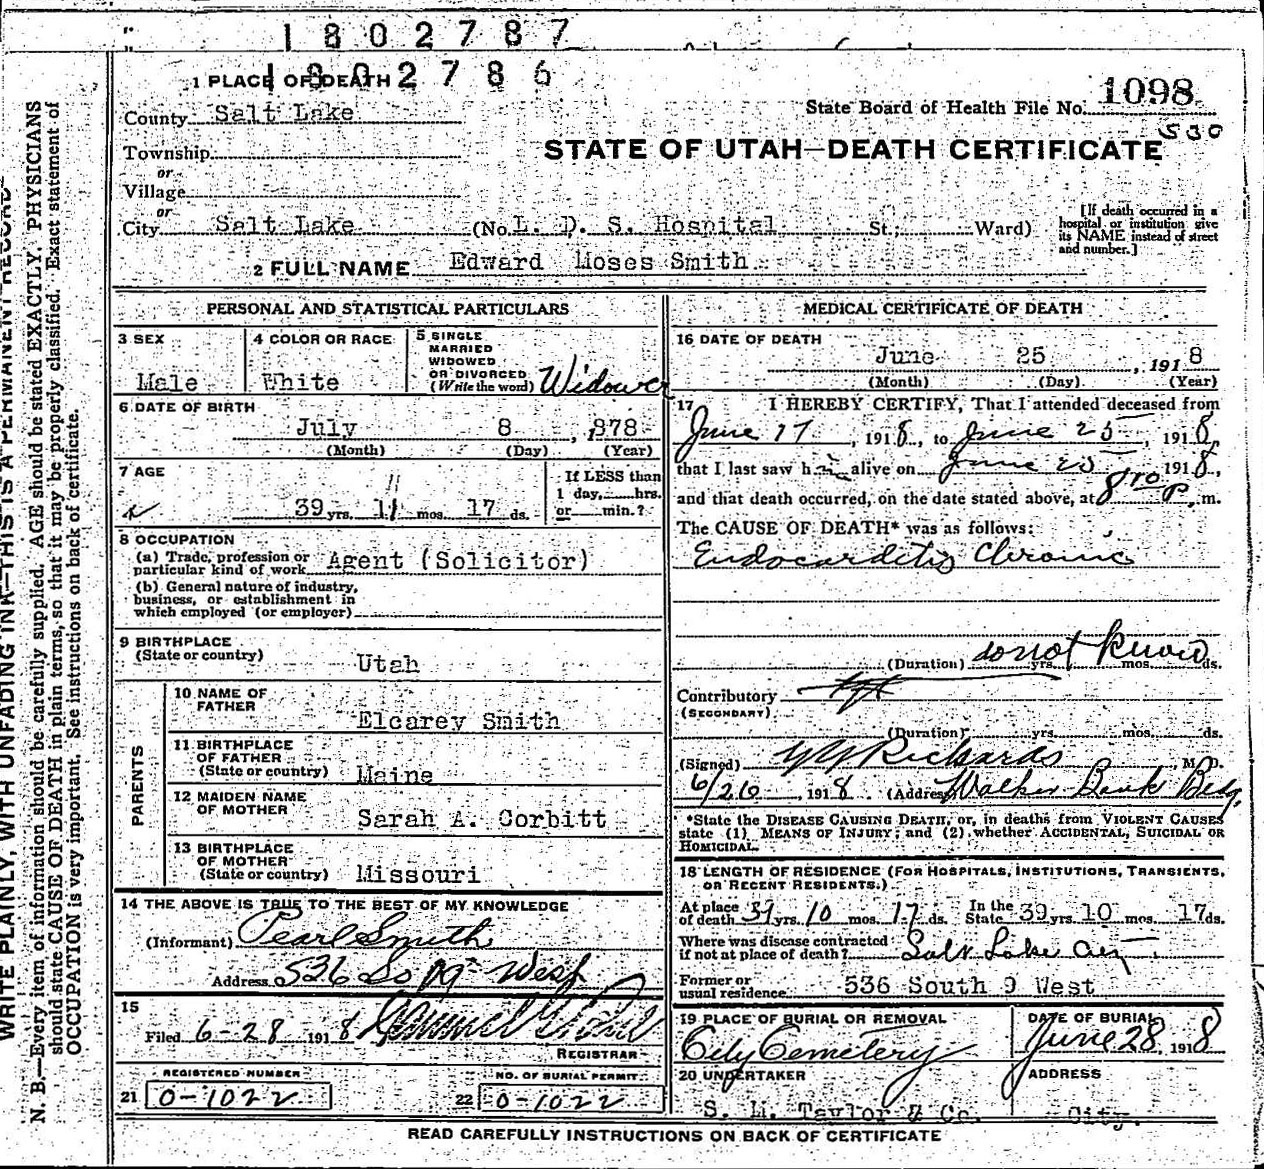 1802787
1802786
1 PLACE OF DEATH
County Salt Lake
State Board of Health File No. 1098
530
Township
STATE OF UTAH—DEATH CERTIFICATE
or
Village
or
City Salt Lake (No. L. D. S. Hospital St.; Ward)
[If death occurred in a
hospital or institution give
its NAME instead of street
and number.]
2 FULL NAME Edward Moses Smith
PERSONAL AND STATISTICAL PARTICULARS
3 SEX
Male
4 COLOR OR RACE
White
5 SINGLE
MARRIED
WIDOWED
OR DIVORCED
(Write the word) Widower
6 DATE OF BIRTH
July 8, 1878
(Month) (Day) (Year)
7 AGE
11
39 yrs. 11 mos. 17 ds.
If LESS than
1 day, hrs.
or min.?
8 OCCUPATION
(a) Trade, profession or
particular kind of work Agent (Solicitor)
(b) General nature of industry,
business, or establishment in
which employed (or employer)
9 BIRTHPLACE
(State or country) Utah
PARENTS
10 NAME OF
FATHER Elcarey Smith
11 BIRTHPLACE
OF FATHER
(State or country) Maine
12 MAIDEN NAME
OF MOTHER Sarah A. Corbitt
13 BIRTHPLACE
OF MOTHER
(State or country) Missouri
14 THE ABOVE IS TRUE TO THE BEST OF MY KNOWLEDGE
(Informant) Pearl Smith
Address 536 So 9th West
15
Filed 6-28 1918
REGISTRAR
REGISTERED NUMBER
21 0-1022
NO. OF BURIAL PERMIT
22 0-1022
MEDICAL CERTIFICATE OF DEATH
16 DATE OF DEATH
June 25, 1918
(Month) (Day) (Year)
17 I HEREBY CERTIFY, That I attended deceased from
June 17, 1918, to June 25, 1918,
that I last saw him alive on June 25 1918,
and that death occurred, on the date stated above, at 8 10 P. m.
The CAUSE OF DEATH* was as follows:
Endocarditis Chronic
(Duration) do not know yrs. mos. ds.
Contributory
(SECONDARY)
(Duration) yrs. mos. ds.
(Signed) Richards, M. D.
6/26, 1918 (Address) Walker Bank Bldg.
*State the DISEASE CAUSING DEATH, or, in deaths from VIOLENT CAUSES
state (1) MEANS OF INJURY; and (2) whether ACCIDENTAL, SUICIDAL OR
HOMICIDAL.
18 LENGTH OF RESIDENCE (FOR HOSPITALS, INSTITUTIONS, TRANSIENTS,
OR RECENT RESIDENTS.)
At place In the
of death 39 yrs. 10 mos. 17 ds. State 39 yrs. 10 mos. 17 ds.
Where was disease contracted
if not at place of death? Salt Lake City
Former or
usual residence 536 South 9 West
19 PLACE OF BURIAL OR REMOVAL
City Cemetery
DATE OF BURIAL
June 28, 1918
20 UNDERTAKER
S. M. Taylor & Co.
ADDRESS
City.
READ CAREFULLY INSTRUCTIONS ON BACK OF CERTIFICATE
WRITE PLAINLY, WITH UNFADING INK—THIS IS A PERMANENT RECORD
N. B.—Every item of information should be carefully supplied. AGE should be stated EXACTLY. PHYSICIANS
should state CAUSE OF DEATH in plain terms, so that it may be properly classified. Exact statement of
OCCUPATION is very important. See instructions on back of certificate.